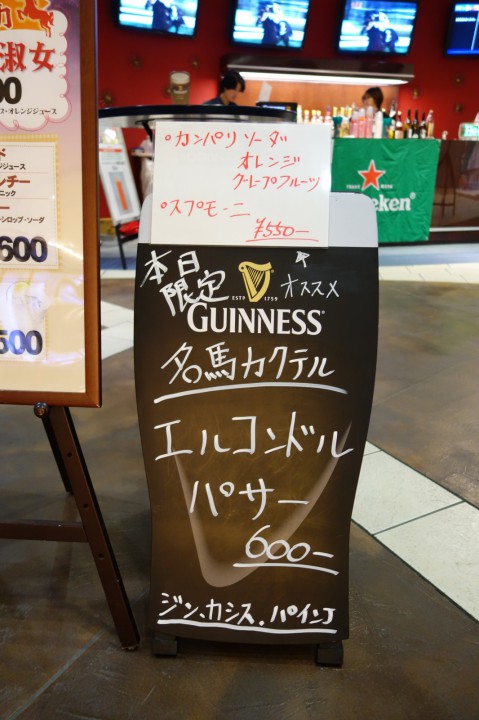 力
淑女
00
ス・オレンジジュース
ド
ジュース
ンチー
ニック
ーシロップ・ソーダ
600
500
○カンパリソーダ
オレンジ
グレープフルーツ
○スプモーニ
¥550-
Heineken
本日
限定
オススメ
ESTD 1759
GUINNESS
名馬カクテル
エルコンドル
パサー
600-
ジン、カシス、パイン J